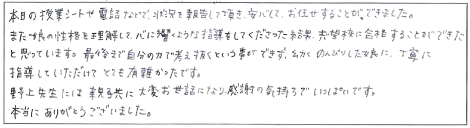 本日の授業シートや電話などで、状況を報告して頂き、安心して、お任せすることができました。
また娘の性格を理解して、心に響くような指導をしてくださった結果、志望校に合格することができた
と思っています。最後まで自分の力で考え抜くという事ができず、幼くのんびりした娘に、丁寧に
指導していただけてとても有難かったです。
野上先生には親子共に大変お世話になり、感謝の気持ちでいっぱいです。
本当にありがとうございました。